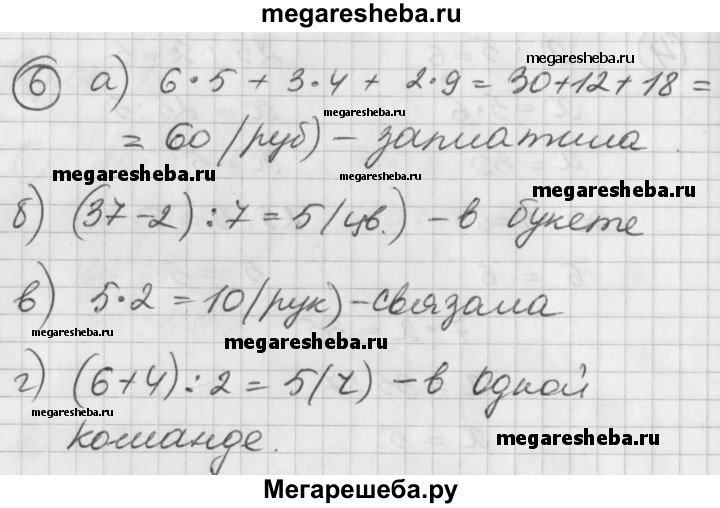 megaresheba.ru
⑥ а) 6·5 + 3·4 + 2·9 = 30+12+18 =
megaresheba.ru
megaresheba.ru
megaresheba.ru
= 60 (руб) – заплатила.
megaresheba.ru
megaresheba.ru
megaresheba.ru
б) (37-2):7 = 5 (цв.) – в букете
в) 5·2 = 10 (рук) – связала
megaresheba.ru
megaresheba.ru
г) (6+4):2 = 5 (ч) – в одной
megaresheba.ru
команде.
megaresheba.ru
Мегарешеба.ру